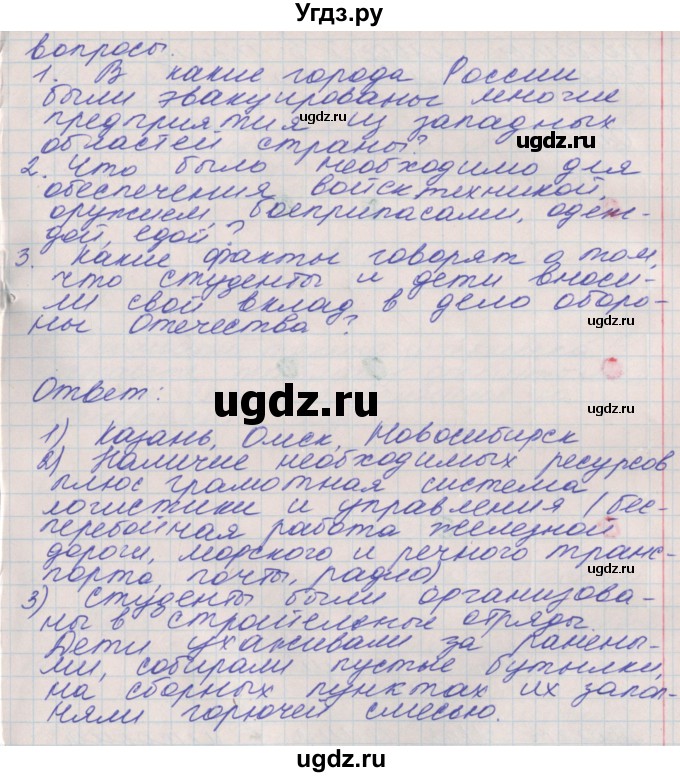 Угдз.ру
вопросы.
1. В какие города России
были эвакуированы многие
предприятия из западных
областей страны?
2. Что было необходимо для
обеспечения войск техникой,
оружием, боеприпасами, одеж-
дой, едой?
3. Какие факты говорят о том,
что студенты и дети вноси-
ли свой вклад в дело оборо-
ны Отечества?
Ответ:
1) Казань, Омск, Новосибирск
2) Наличие необходимых ресурсов
плюс грамотная система
логистики и управления (бес-
перебойная работа железной
дороги, морского и речного транс-
порта, почты, радио)
3) Студенты были организова-
ны в строительные отряды.
Дети ухаживали за ранены-
ми, собирали пустые бутылки,
на сборных пунктах их запол-
няли горючей смесью.
ugdz.ru
ugdz.ru
ugdz.ru
ugdz.ru
ugdz.ru
ugdz.ru
ugdz.ru
ugdz.ru
ugdz.ru